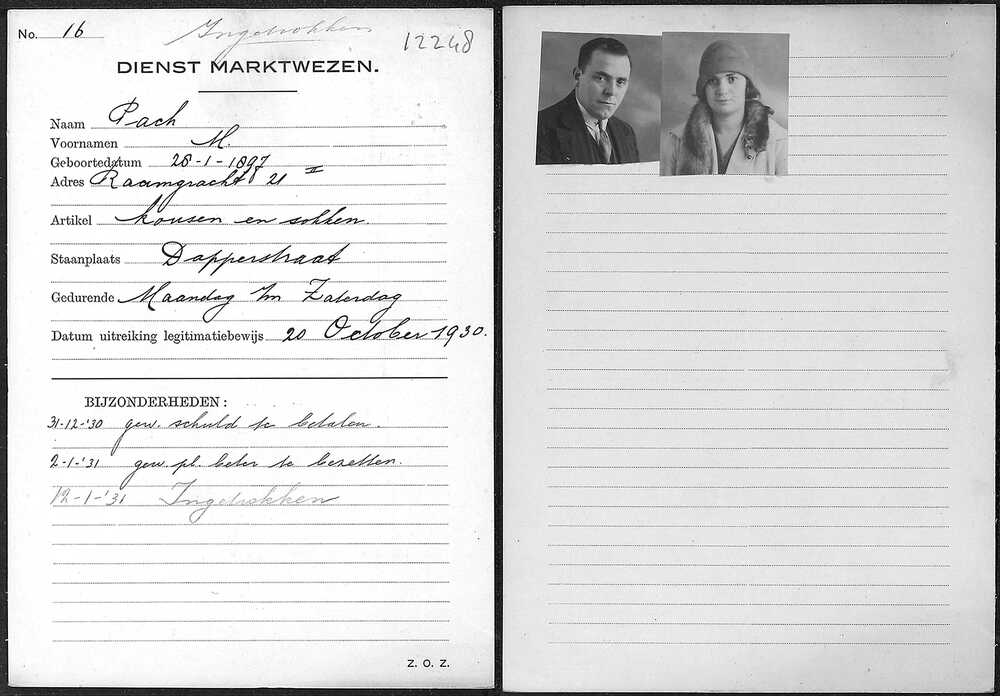 No. 16
Ingetrokken
12248
DIENST MARKTWEZEN.
Naam Pach
Voornamen M.
Geboortedatum 28-1-1897
Adres Raamgracht 21 II
Artikel kousen en sokken.
Staanplaats Dapperstraat
Gedurende Maandag t/m Zaterdag
Datum uitreiking legitimatiebewijs 20 October 1930.
BIJZONDERHEDEN:
31-12-'30 gew. schuld te betalen.
2-1-'31 gew. pl. beter te bezetten.
12-1-'31 Ingetrokken
Z. O. Z.